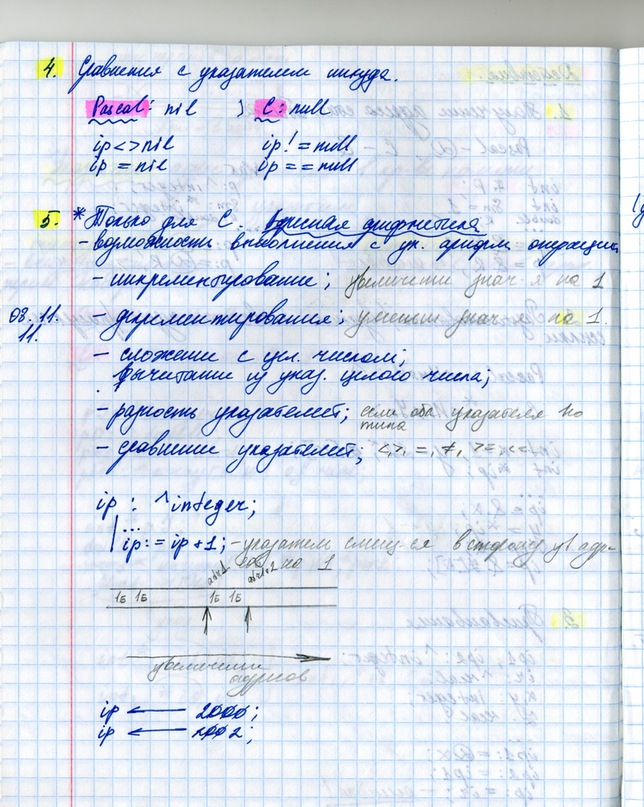 4. Сравнения с указателем никуда.
Pascal: nil ; C: null
ip<>nil ip != null
ip = nil ip == null
5. * Только для С. Адресная арифметика
- возможности выполнения с ук. арифм. операции
- инкрементирование; увеличение знач-я на 1
08.11.11. - декрементирования; уменьш знач-я на 1.
- сложение с цел. числом;
Вычитание из указ. целого числа;
- разность указателей; если оба указателя 1го
типа
- сравнение указателей; <, >, =, ≠, >=, <=
ip : ^integer;
...
ip := ip + 1; - указатель смещ-ся в сторону ув адре-
сов на 1
adr+1 adr+2
1Б 1Б 1Б 1Б
увеличение
адресов
ip ← 2000;
ip ← 2002;